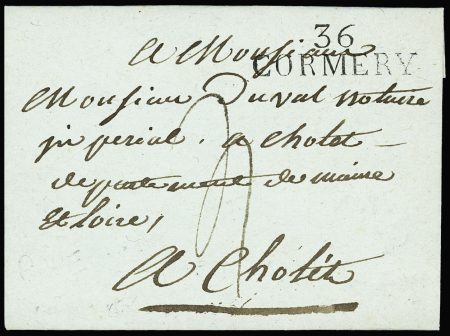 36
CORMERY
A Monsieur
Monsieur Duval notaire
jmperial. a Cholet
departement de maine
Et Loire,
A Cholet